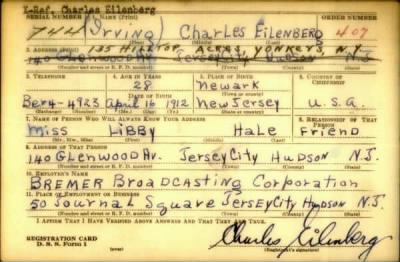 X-Ref. Charles Eilenberg
SERIAL NUMBER 1. NAME (Print) ORDER NUMBER
744 (Irving) Charles Eilenberg 407
135 Hilltop Acres, Yonkers, N.Y.
2. ADDRESS (Print)
140 Glenwood Av. Jersey City Hudson N.J.
(Number and street or R. F. D. number) (Town) (County) (State)
3. TELEPHONE 4. AGE IN YEARS 5. PLACE OF BIRTH 6. COUNTRY OF CITIZENSHIP
28 Newark
DATE OF BIRTH
Ber4-4923 April 16 1912 New Jersey U.S.A.
7. NAME OF PERSON WHO WILL ALWAYS KNOW YOUR ADDRESS 8. RELATIONSHIP OF THAT PERSON
Miss Libby Hale Friend
(Mr., Mrs., Miss) (First) (Middle) (Last)
9. ADDRESS OF THAT PERSON
140 Glenwood Av. Jersey City Hudson N.J.
(Number and street or R. F. D. number) (Town) (County) (State)
10. EMPLOYER'S NAME
Bremer Broadcasting Corporation
11. PLACE OF EMPLOYMENT OR BUSINESS
50 Journal Square Jersey City Hudson N.J.
(Number and street or R. F. D. number) (Town) (County) (State)
I AFFIRM THAT I HAVE VERIFIED ABOVE ANSWERS AND THAT THEY ARE TRUE.
REGISTRATION CARD
D. S. S. Form 1
Charles Eilenberg
(Registrant's signature)